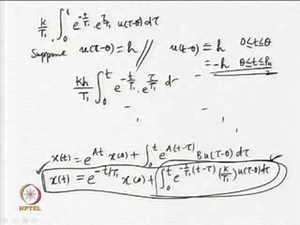 K/T₁ ∫₀ᵗ e^{-t/T₁} e^{τ/T₁} u(τ-θ) dτ
Suppose u(τ-θ) = h u(t-θ) = h 0≤t≤θ
= -h θ≤t≤Pu
Kh/T₁ ∫₀ᵗ e^{-t/T₁} e^{τ/T₁} dτ
x(t) = e^{At} x(0) + ∫₀ᵗ e^{A(t-τ)} B u(τ-θ) dτ
x(t) = e^{-t/T₁} x(0) + ∫₀ᵗ e^{-1/T₁ (t-τ)} (K/T₁) u(τ-θ) dτ
NPTEL